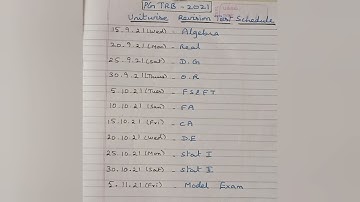 PG TRB - 2021
Unitwise Revision Test Schedule
15.9.21 (Wed) - Algebra
20.9.21 (Mon) - Real
25.9.21 (Sat) - D.G
30.9.21 (Thurs) - O.R
5.10.21 (Tues) - FS & FT
10.10.21 (Sun) - FA
15.10.21 (Fri) - CA
20.10.21 (Wed) - D.E
25.10.21 (Mon) - Stat I
30.10.21 (Sat) - Stat II
5.11.21 (Fri) - Model Exam